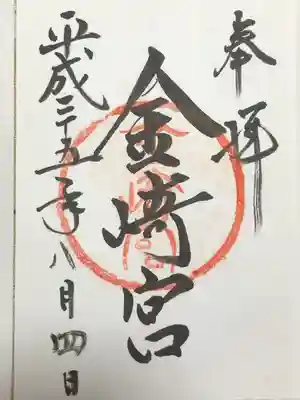 奉拝
金﨑宮
平成二五年八月四日